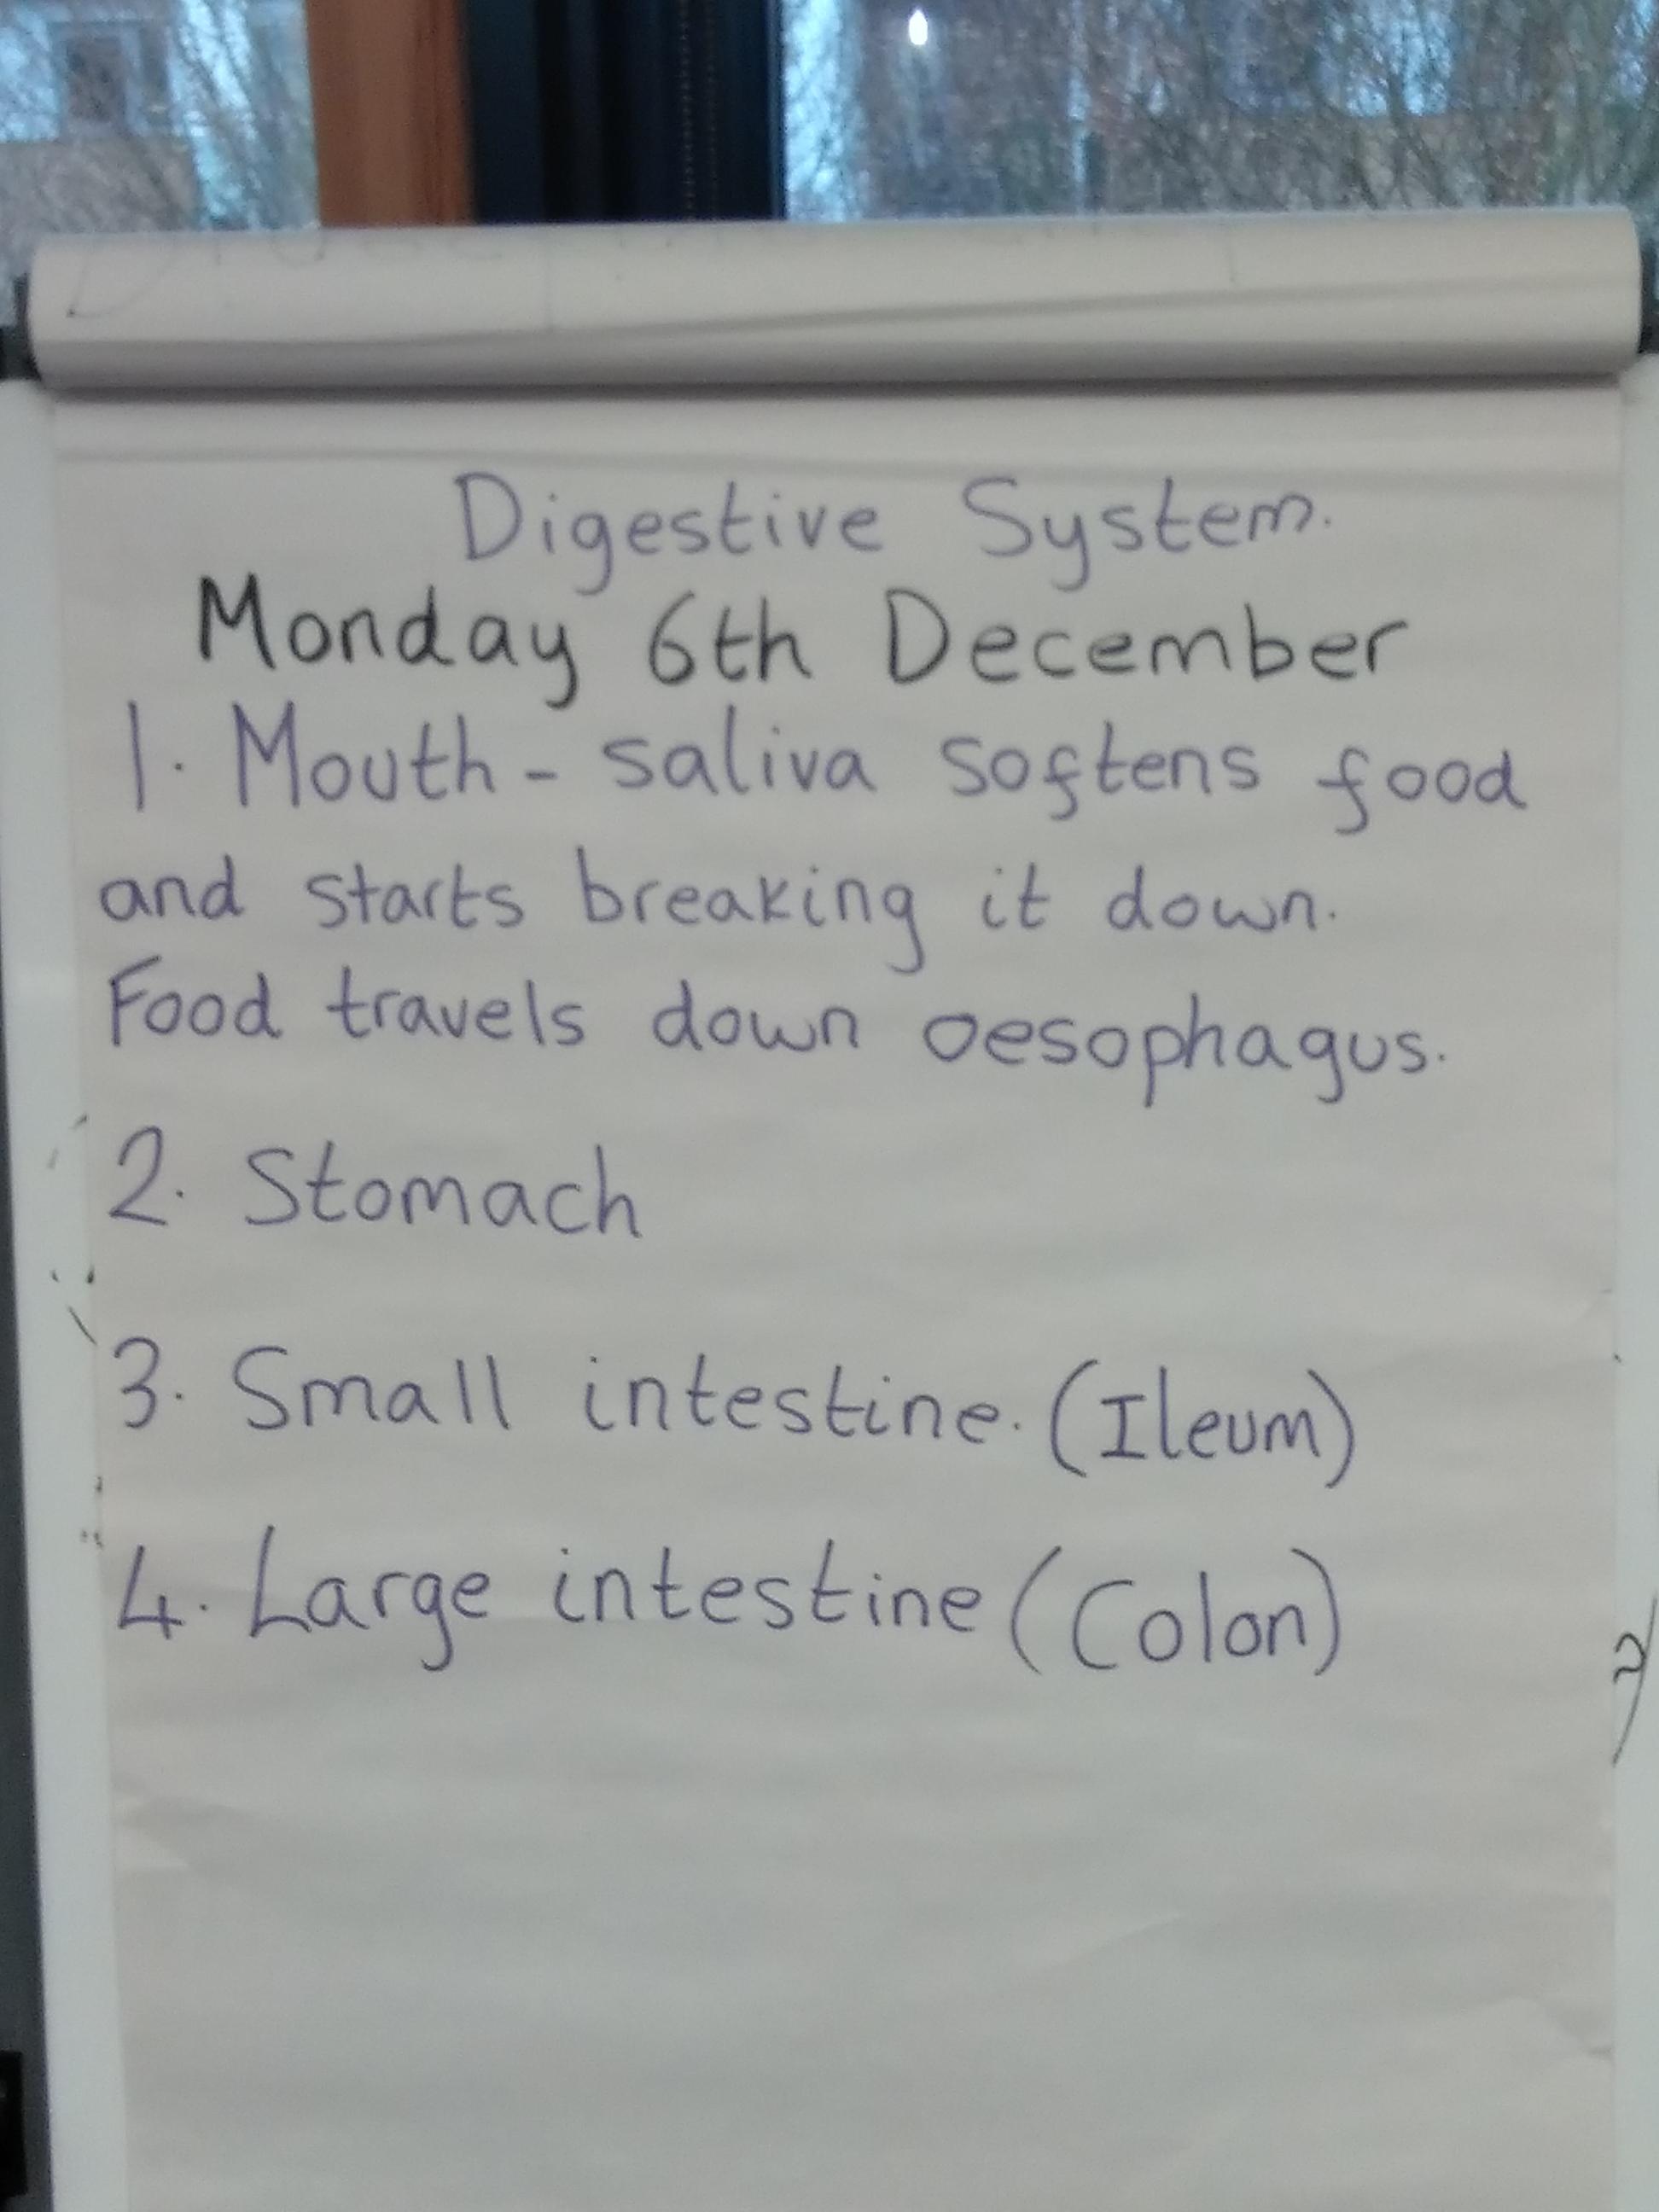 Digestive System.
Monday 6th December
1. Mouth - saliva softens food
and starts breaking it down.
Food travels down oesophagus.
2. Stomach
3. Small intestine. (Ileum)
4. Large intestine (Colon)